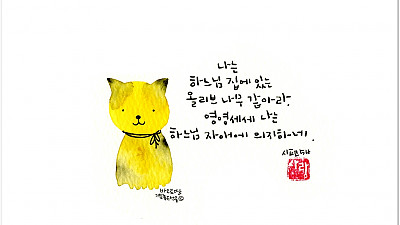 나는
하느님 집에 있는
올리브 나무 같아라.
영영세세 나는
하느님 자애에 의지하네.
시편 52
바오로딸